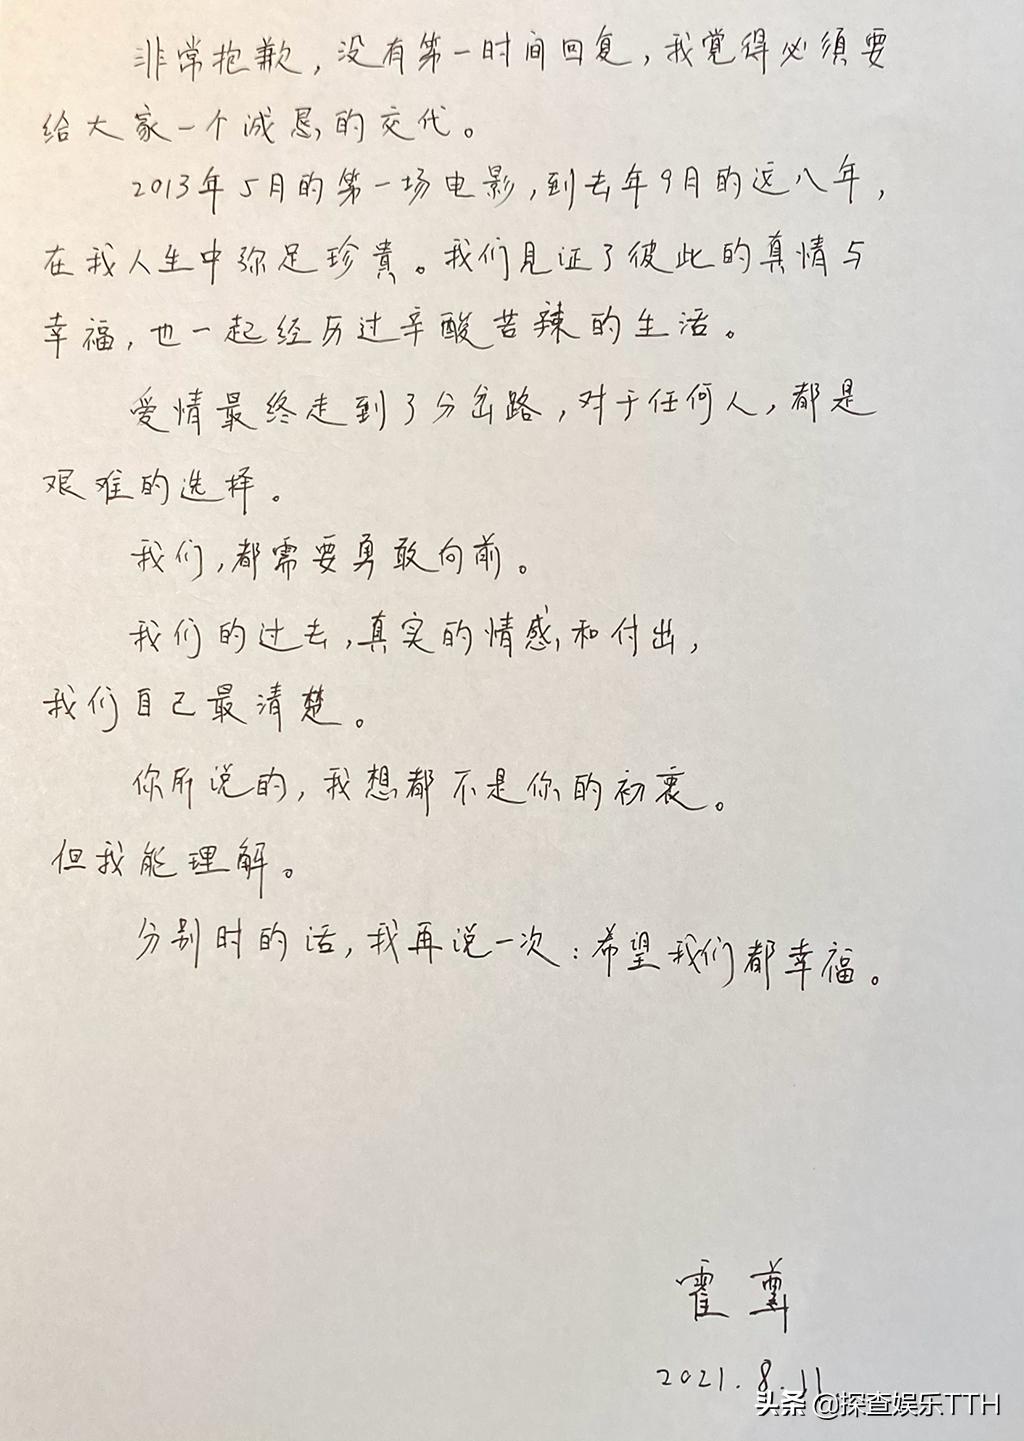 非常抱歉，没有第一时间回复，我觉得必须要
给大家一个诚恳的交代。
2013年5月的第一场电影，到去年9月的近八年，
在我人生中弥足珍貴。我们见证了彼此的真情与
幸福，也一起经历过辛酸苦辣的生活。
爱情最终走到了分岔路，对于任何人，都是
艰难的选择。
我们，都需要勇敢向前。
我们的过去，真实的情感和付出，
我们自己最清楚。
你所说的，我想都不是你的初衷。
但我能理解。
分别时的话，我再说一次：希望我们都幸福。
霍尊
2021.8.11
头条 @探查娱乐TTH